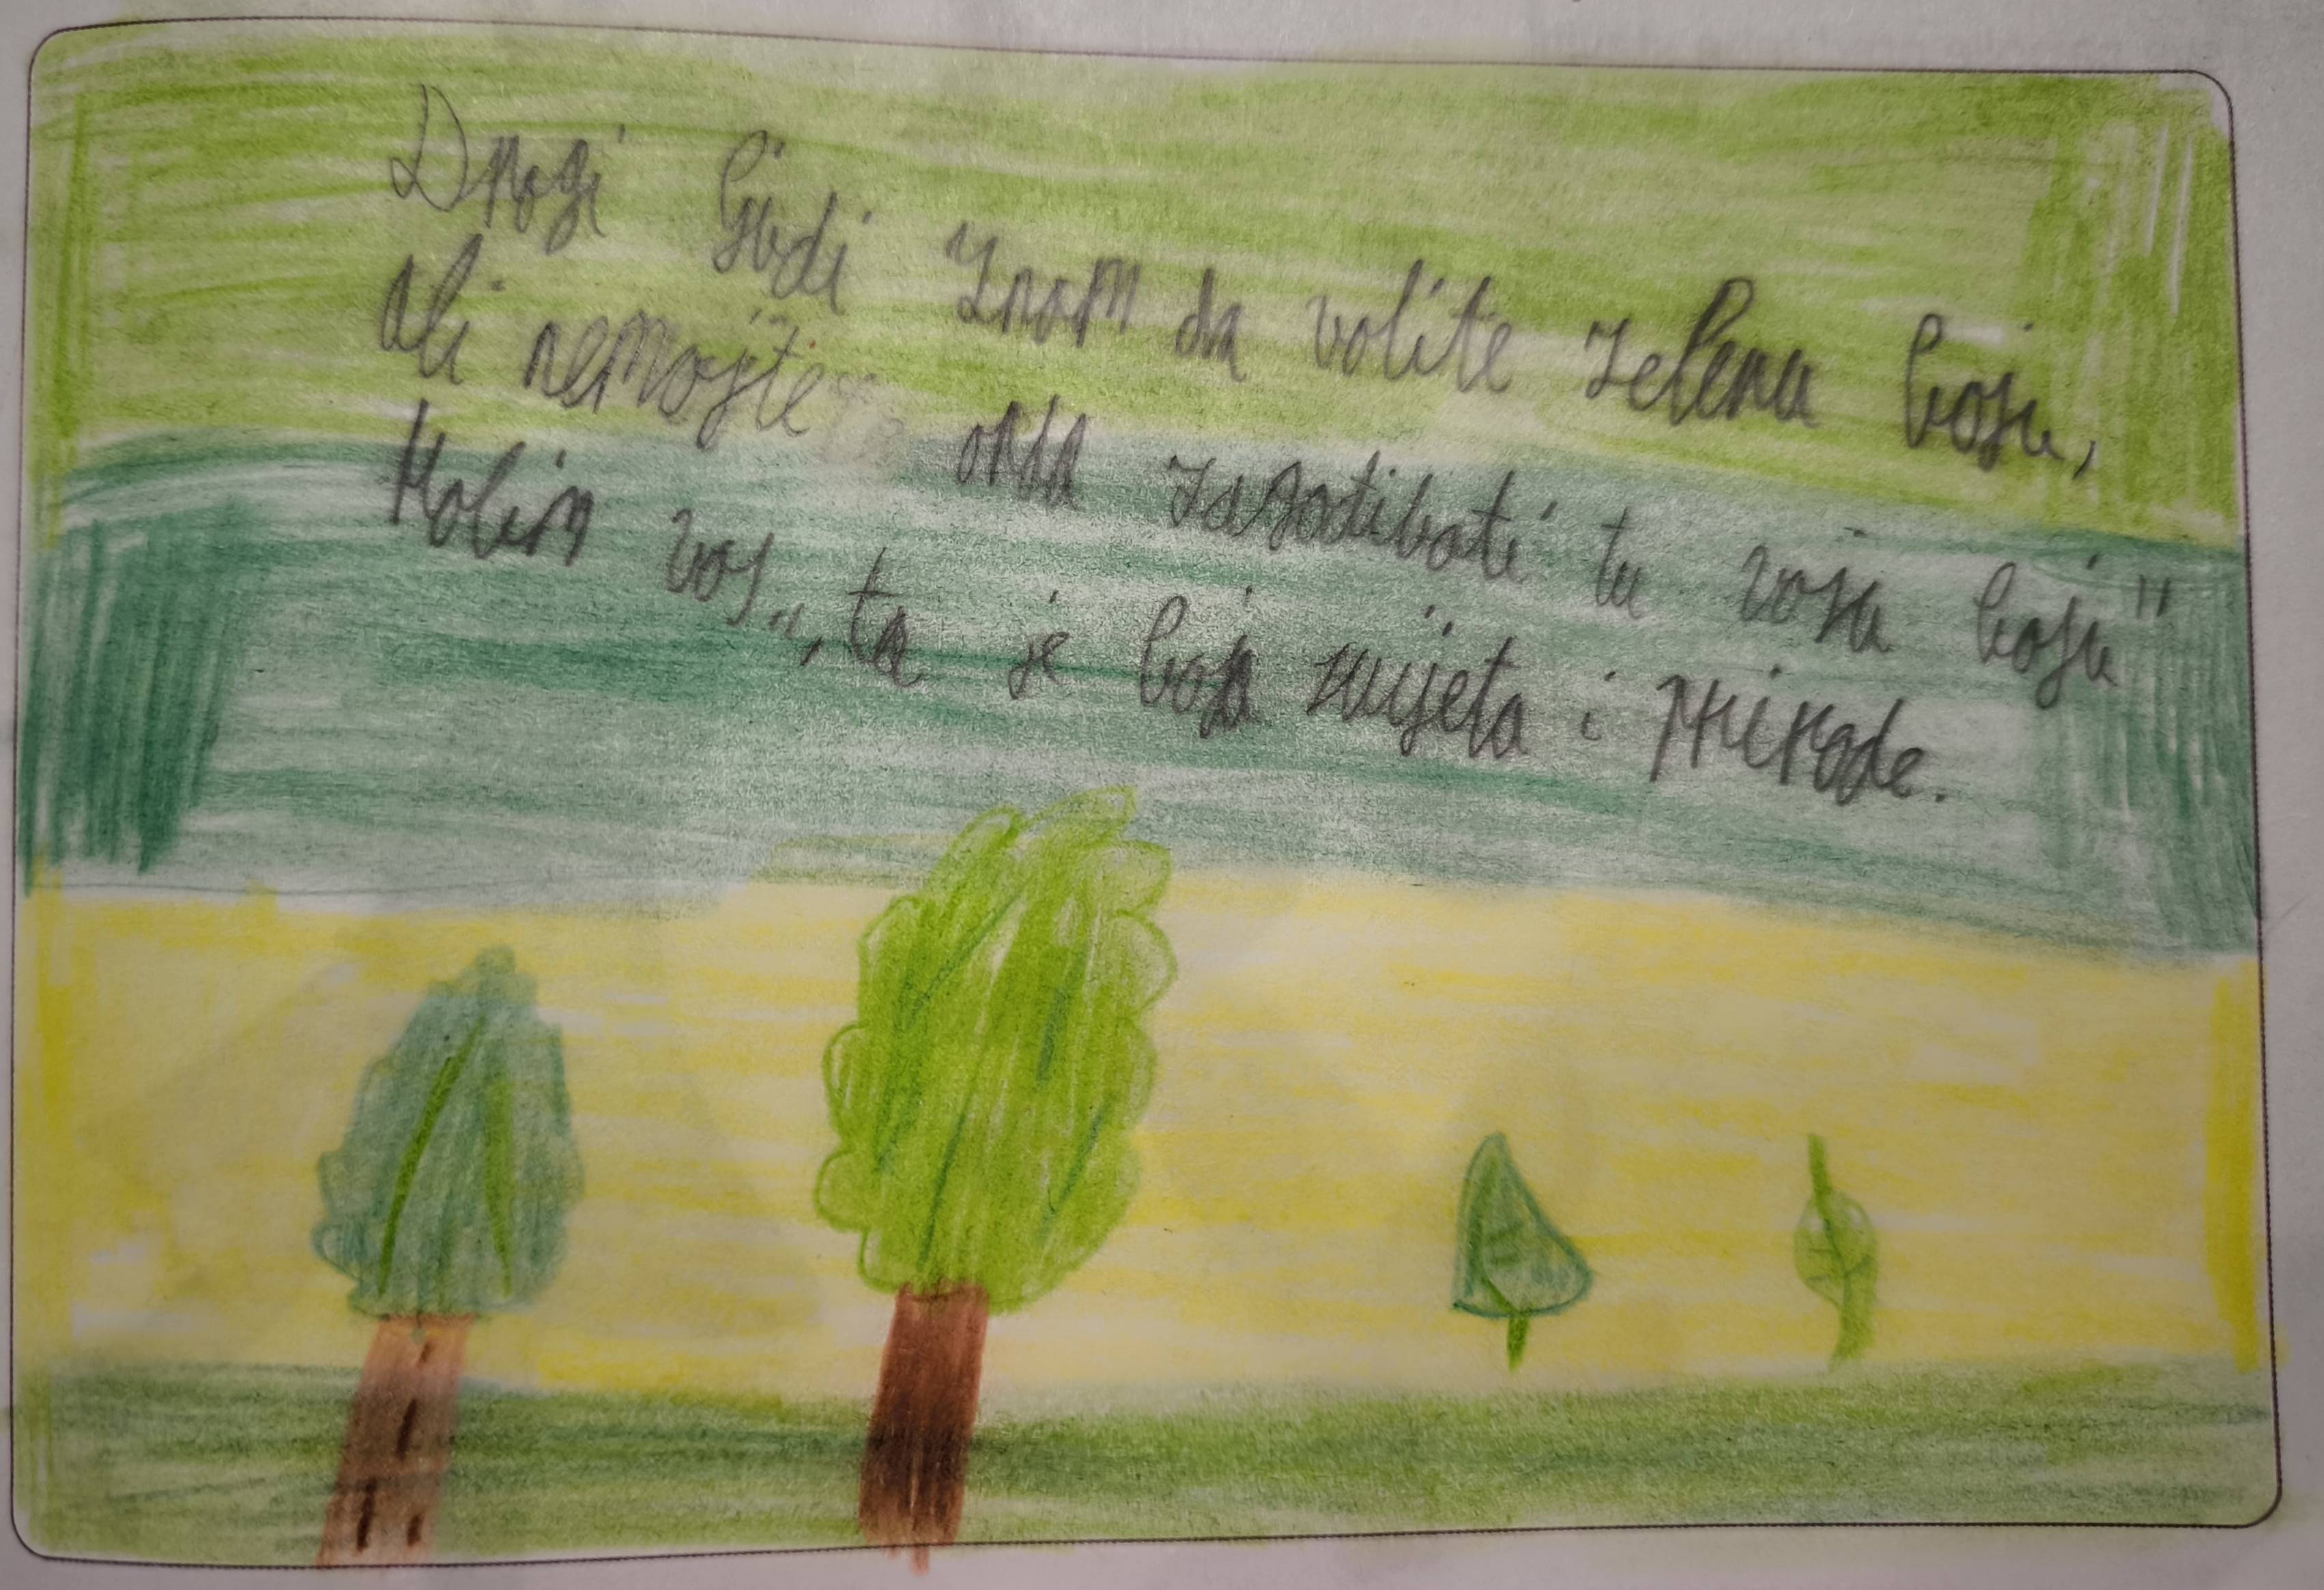 Dragi ljudi znam da volite zelenu boju,
ali nemojte onda zagađivati tu boju"
Molim vas„, ta je boja svijeta i prirode.